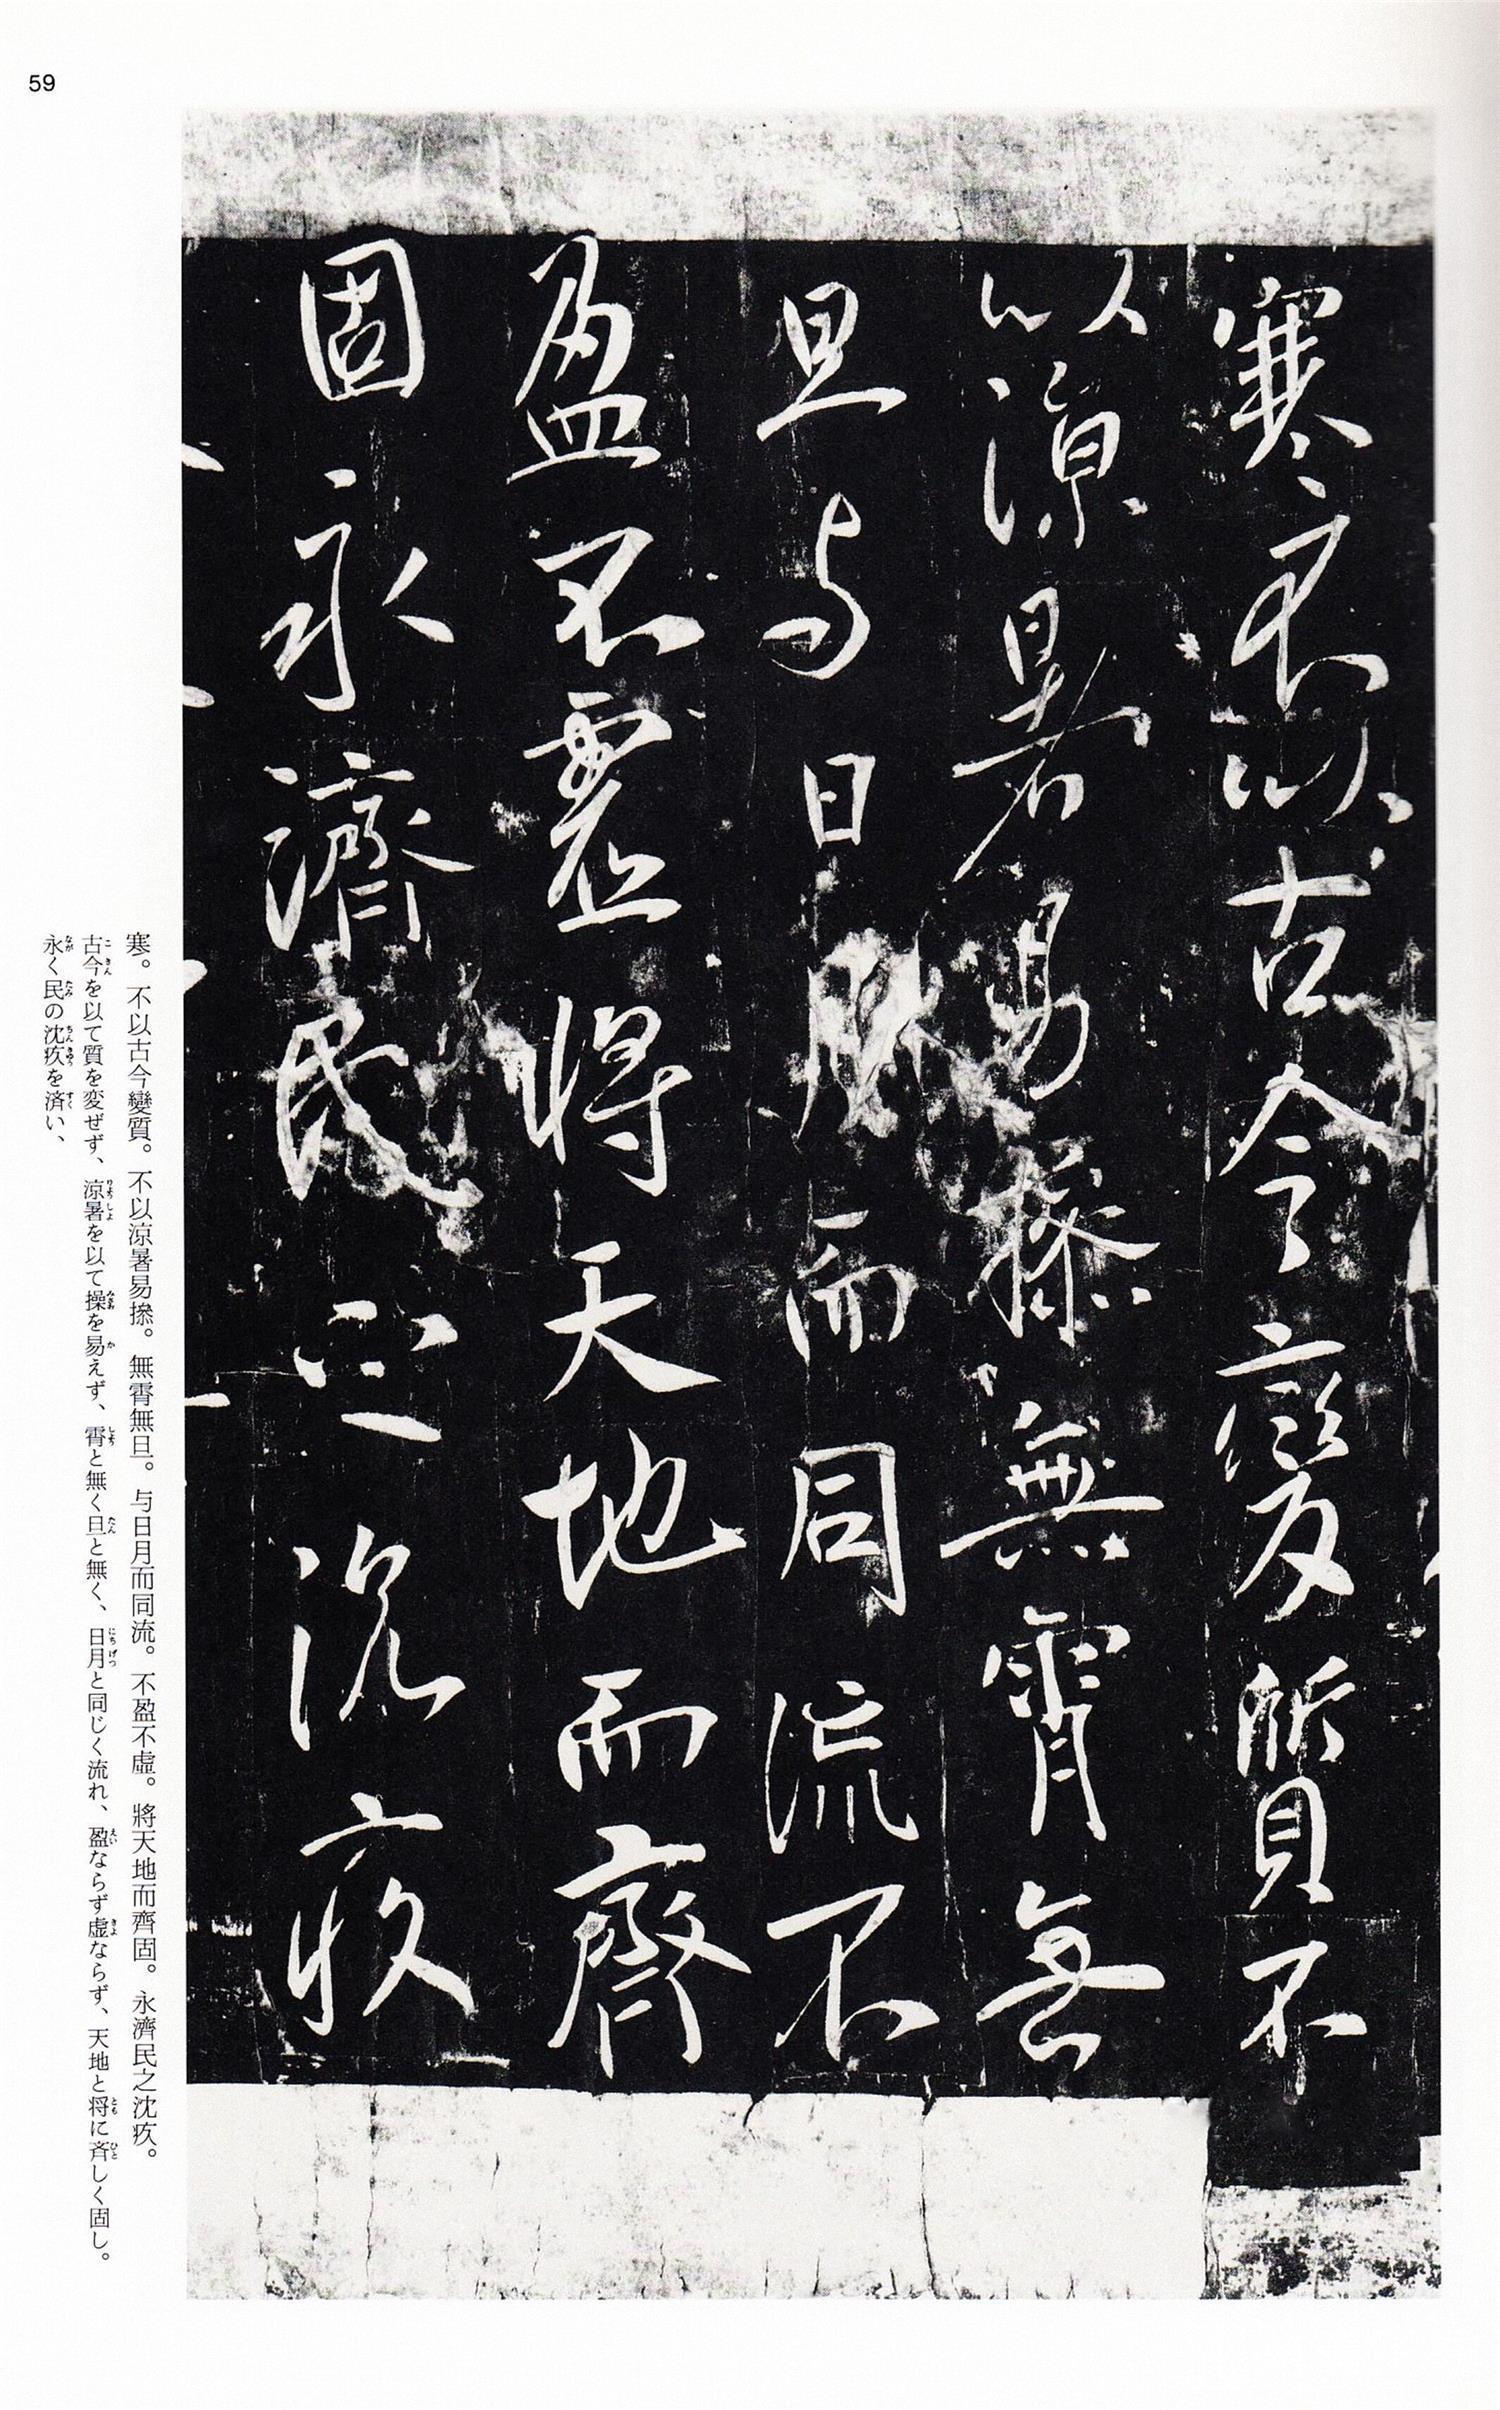 59
寒不以古今變質不
以涼暑易搡無霄無
旦与日月而同流不
盈不虛將天地而齊
固永濟民之沈疚
寒。不以古今變質。不以涼暑易搡。無霄無旦。与日月而同流。不盈不虛。將天地而齊固。永濟民之沈疚。
古今を以て質を変ぜず、涼暑を以て操を易えず、霄と無く旦と無く、日月と同じく流れ、盈ならず虚ならず、天地と将に斉しく固し。
永く民の沈疚を済い、